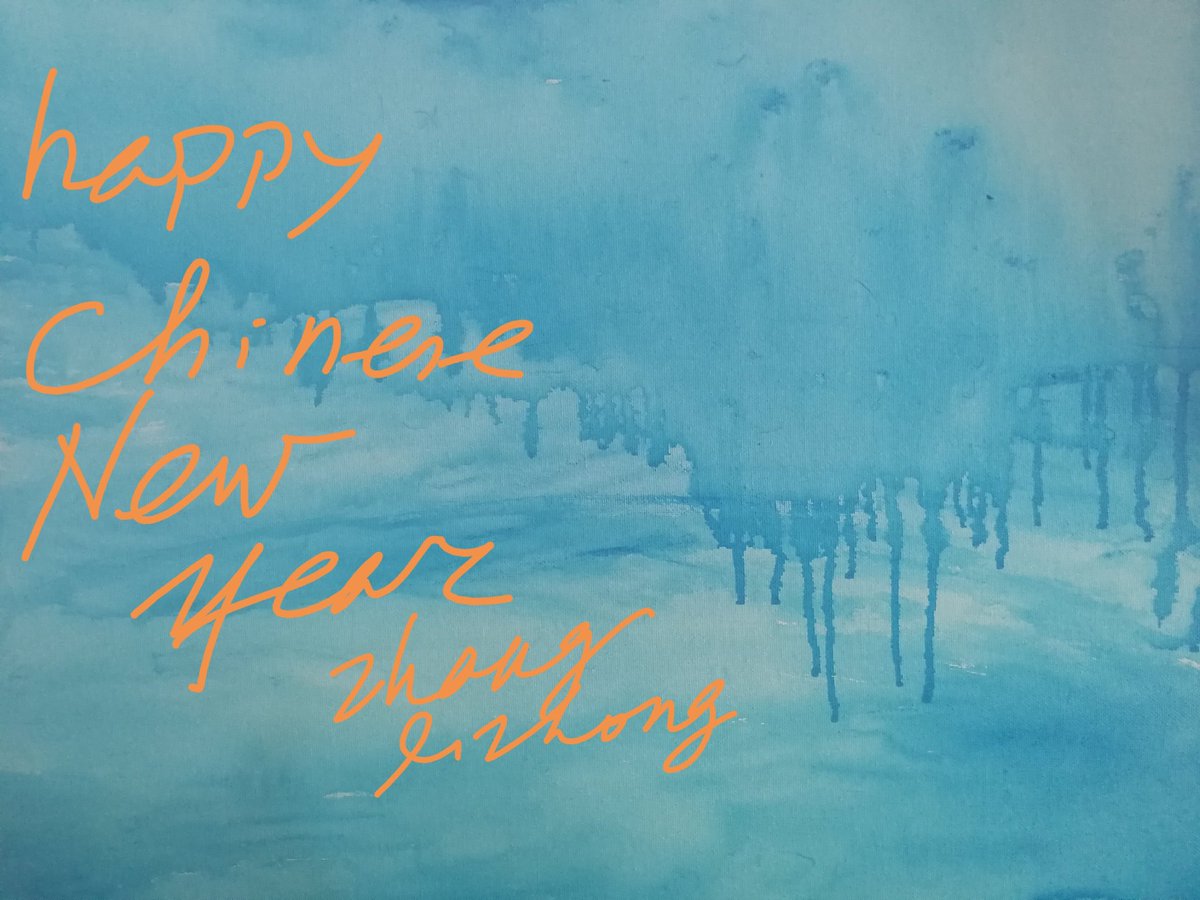 happy
Chinese
New
year
zhang
lizhong